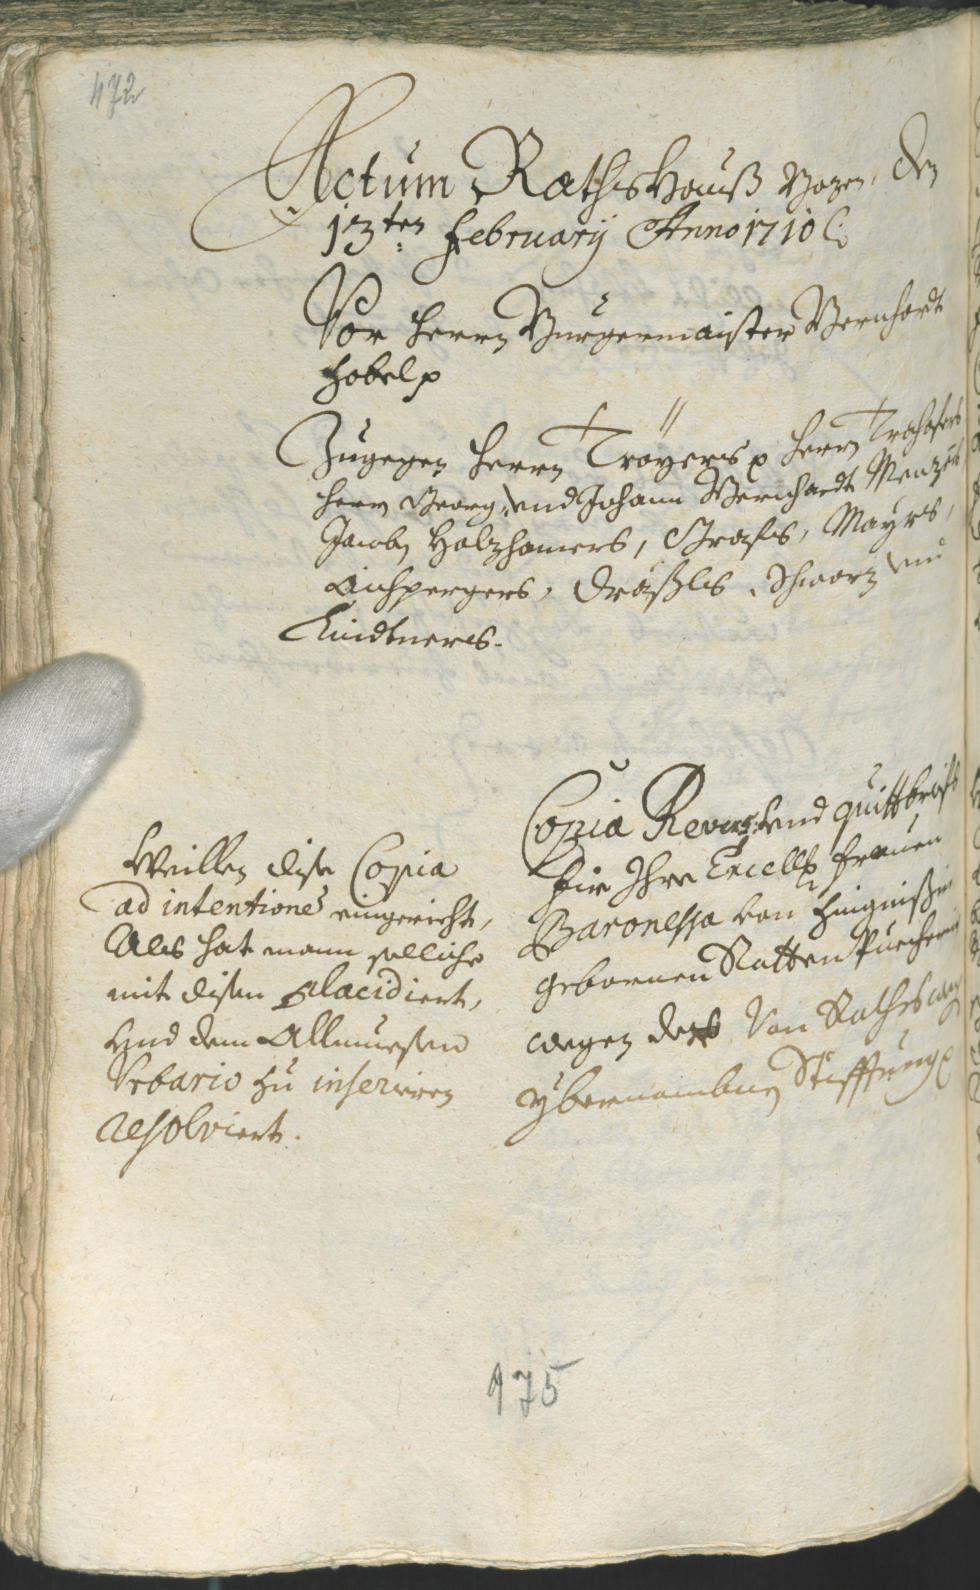 472
Actum RathsHauß Bozen, den
13ten February Anno 1710
Vor Herrn Burgermaister Bernhardt
Hobel p
Zugegen Herrn Troyers p Herrn
Herrn Georg, und Johann Bernhardt Menzen
Jacob Holzhamers, Grafs, Mayrs,
Aichpergers, Dräßls, Schwarz und
Lindtners.
Copia Revers und quittbrief
für Ihre Excell. Frauen
Baronessa von
gebornen
wegen der von Raths weg
ybernombnen Stifftung
Weillen dise Copia
ad intentione eingericht,
Als hat mann solliche
mit disen placidiert,
und dem Allmuesen
Urbario zu inseriren
resolviert.
175